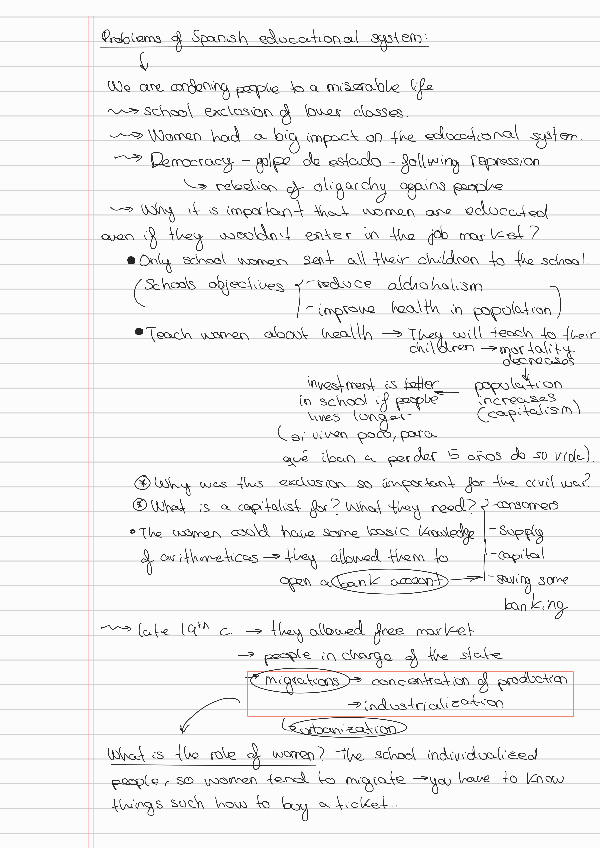 Problems of Spanish educational system:
↓
We are condening people to a miserable life
⤳ school exclusion of lower classes.
⤳ Women had a big impact on the educational system.
⤳ Democracy - golpe de estado - follwing repression
↳ rebelion of oligarchy agains people
⤳ Why it is important that women are educated
even if they wouldn't enter in the job market?
• Only school women sent all their children to the school
(Schools objectives - reduce aldroholism
- improve health in population)
• Teach women about health → They will teach to their
children → mortality
decreases
↓
investment is better population
in school if people increases
lives longer (capitalism)
(si viven poco, para
qué iban a perder 5 años de su vida).
* Why was this exclusion so important for the civil war?
* What is a capitalist for? What they need? - consumers
• The women could have some basic knowledge - supply
of arithmetices → they allowed them to - capital
open a bank account → - saving some
banking
⤳ late 19th c. → they allowed free market
→ people in charge of the state
→ migrations → concentration of production
→ industrialization
↳ urbanization
What is the role of women? The school individualiced
people, so women tend to migrate → you have to know
things such how to buy a ticket...